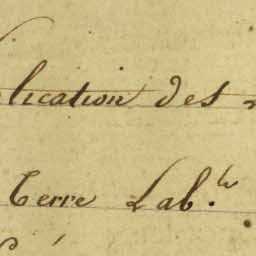 lication des
terre Lab.le